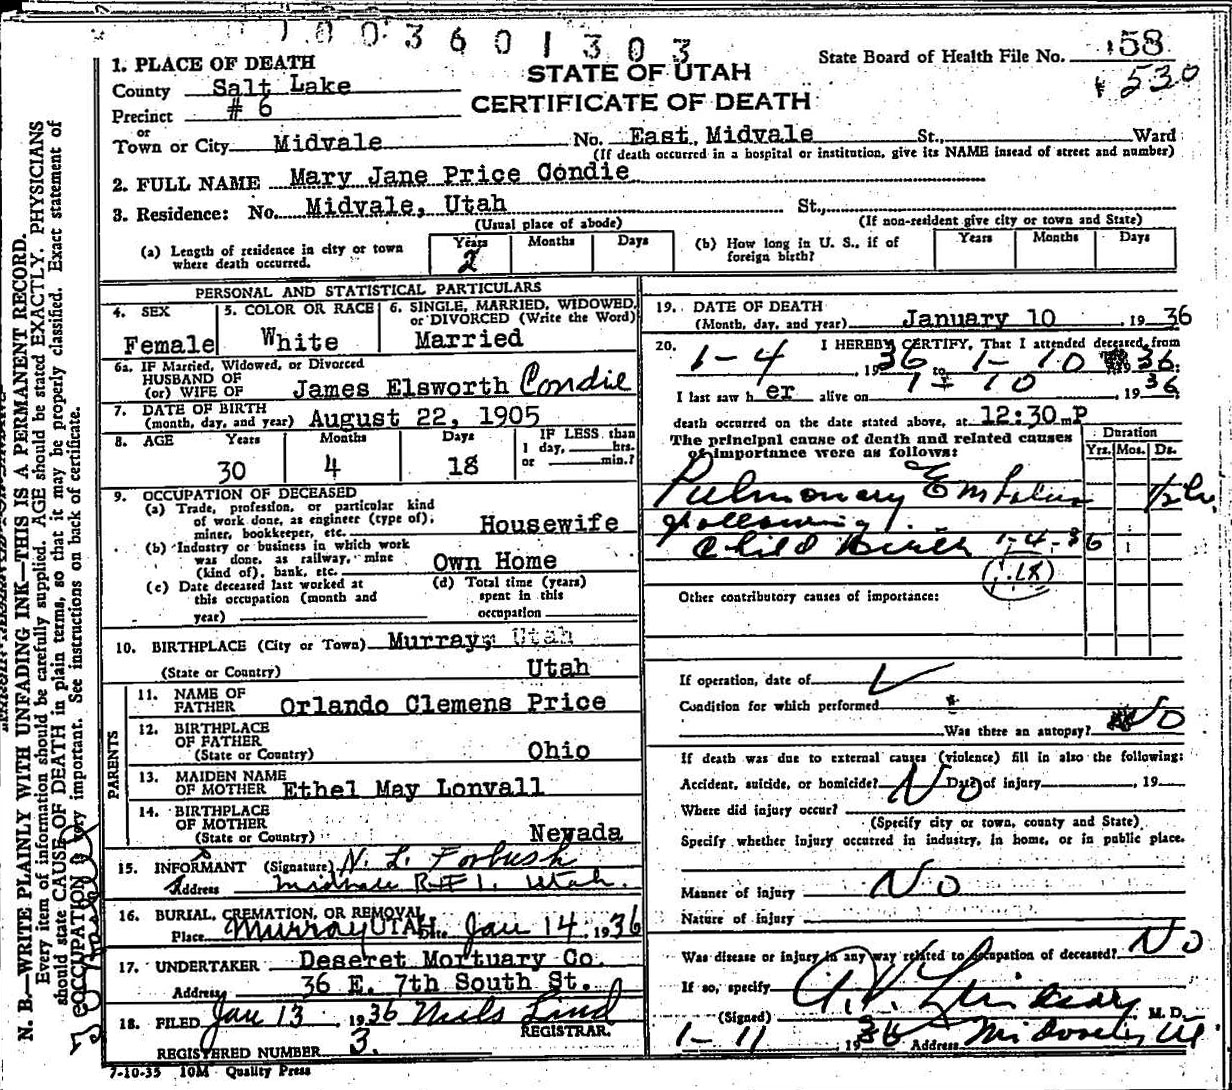 1003601303
State Board of Health File No. 58
530
STATE OF UTAH
CERTIFICATE OF DEATH
1. PLACE OF DEATH
County Salt Lake
Precinct # 6
or
Town or City Midvale No. East Midvale St., Ward
(If death occurred in a hospital or institution, give its NAME insead of street and number)
2. FULL NAME Mary Jane Price Condie
3. Residence: No. Midvale, Utah St.,
(Usual place of abode) (If non-resident give city or town and State)
(a) Length of residence in city or town where death occurred. Years 2 Months Days
(b) How long in U. S., if of foreign birth? Years Months Days
PERSONAL AND STATISTICAL PARTICULARS
4. SEX Female
5. COLOR OR RACE White
6. SINGLE, MARRIED, WIDOWED, or DIVORCED (Write the Word) Married
6a. IF Married, Widowed, or Divorced
HUSBAND OF
(or) WIFE OF James Elsworth Condie
7. DATE OF BIRTH
(month, day, and year) August 22, 1905
8. AGE Years Months Days IF LESS than
1 day, hrs.
or min.?
30 4 18
9. OCCUPATION OF DECEASED
(a) Trade, profession, or particular kind
of work done, as engineer (type of);
miner, bookkeeper, etc. Housewife
(b) Industry or business in which work
was done, as railway, mine
(kind of), bank, etc. Own Home
(c) Date deceased last worked at
this occupation (month and
year)
(d) Total time (years)
spent in this
occupation
10. BIRTHPLACE (City or Town) Murray, Utah
(State or Country) Utah
PARENTS
11. NAME OF
FATHER Orlando Clemens Price
12. BIRTHPLACE
OF FATHER
(State or Country) Ohio
13. MAIDEN NAME
OF MOTHER Ethel May Lonvall
14. BIRTHPLACE
OF MOTHER
(State or Country) Nevada
15. INFORMANT (Signature) N. L. Forbush
Address Midvale R#1. Utah.
16. BURIAL, CREMATION, OR REMOVAL
Place Murray UTAH Jan 14, 1936
17. UNDERTAKER Deseret Mortuary Co.
Address 36 E. 7th South St.
18. FILED Jan 13 1936 Niels Lind
REGISTRAR.
REGISTERED NUMBER 3.
7-10-35 10M Quality Press
19. DATE OF DEATH
(Month, day, and year) January 10 1936
20. I HEREBY CERTIFY, That I attended deceased from
1-4, 1936 to 1-10 36.
I last saw h er alive on 1-10, 1936
death occurred on the date stated above, at 12:30 m P
The principal cause of death and related causes
of importance were as follows:
Duration
Yrs. Mos. Ds.
Pulmonary Embolus 1/2 hr
following
Child Birth 1-4-36
Other contributory causes of importance:
If operation, date of
Condition for which performed
Was there an autopsy? No
If death was due to external causes (violence) fill in also the following:
Accident, suicide, or homicide? No Date of injury , 19
Where did injury occur?
(Specify city or town, county and State)
Specify whether injury occurred in industry, in home, or in public place.
Manner of injury No
Nature of injury
Was disease or injury in any way related to occupation of deceased? No
If so, specify
(Signed) Lindsay M. D.
1-11 1936 Address Midvale Ut
N. B.—WRITE PLAINLY WITH UNFADING INK—THIS IS A PERMANENT RECORD.
Every item of information should be carefully supplied. AGE should be stated EXACTLY. PHYSICIANS
should state CAUSE OF DEATH in plain terms, so that it may be properly classified. Exact statement of
OCCUPATION is very important. See instructions on back of certificate.